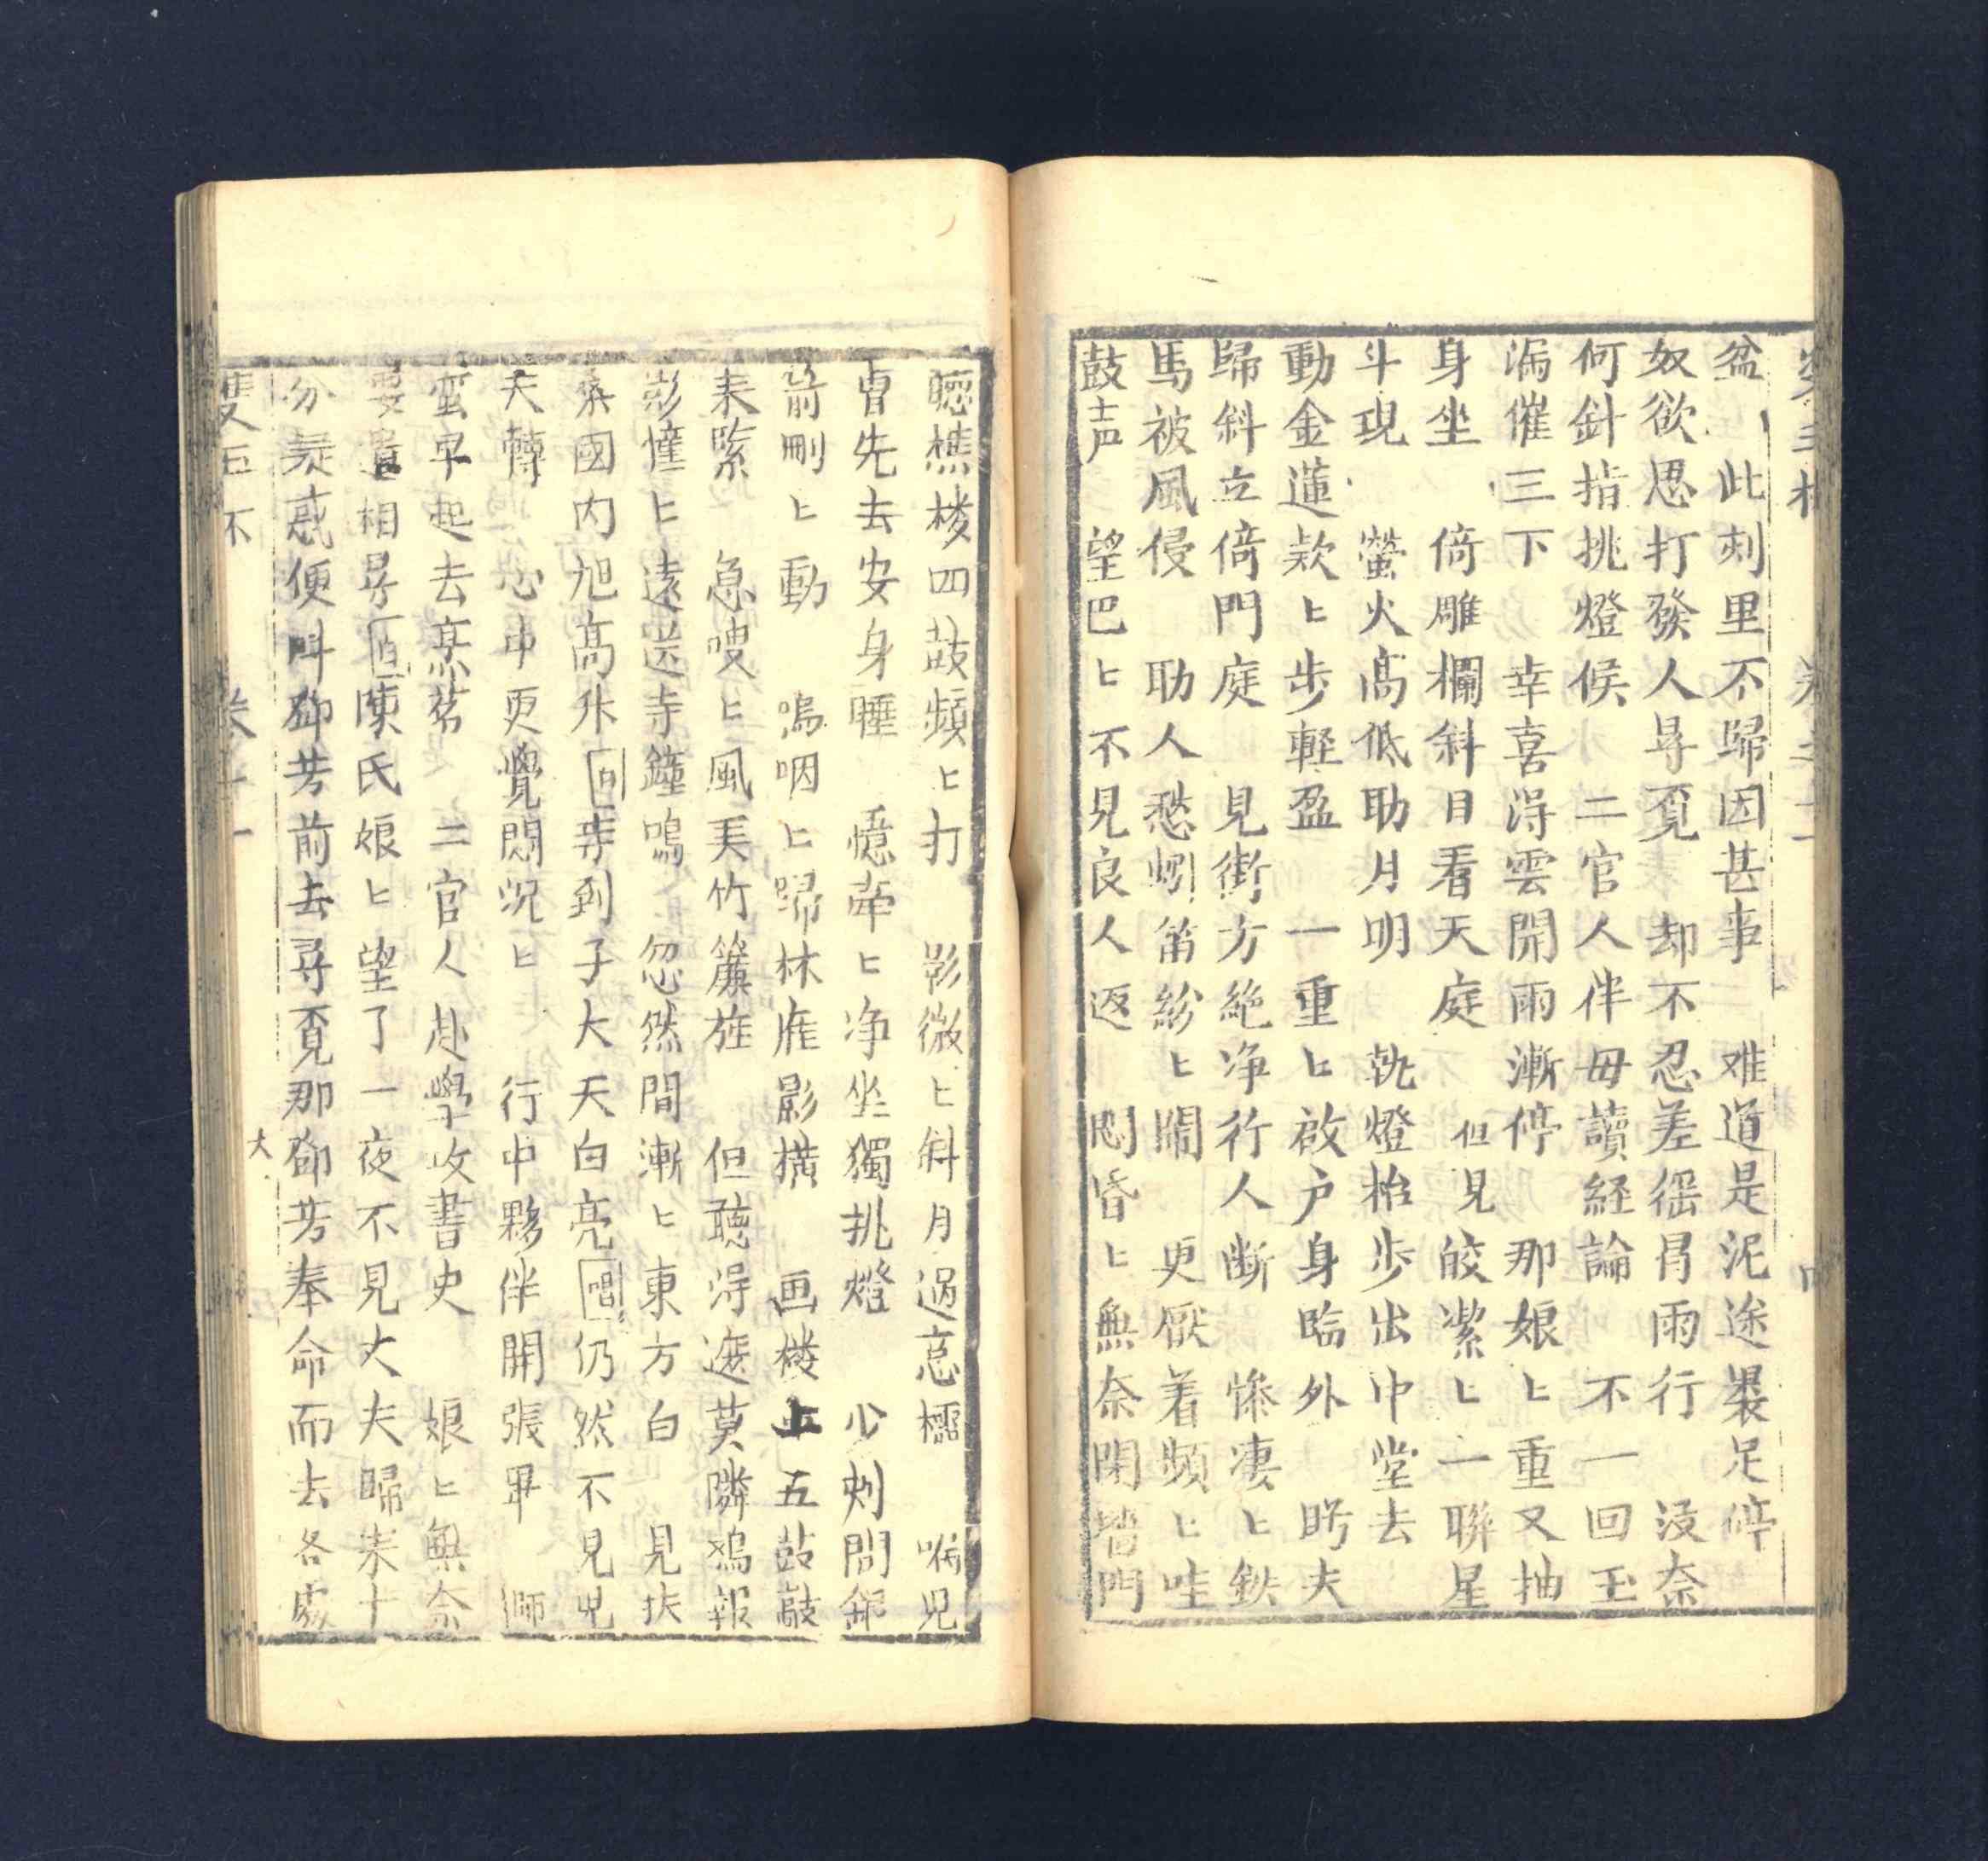 盆　此刻里不歸因甚事　难道是泥途裹足停
奴欲思打發人尋覔　却不忍差徭冐雨行　没奈
何針指挑燈候　二官人伴毋讀経論　不一回玉
漏催三下　幸喜淂雲開雨漸停　那娘ヒ重又抽
身坐　倚雕欄斜目看天庭　但見皎潔ヒ一聯星
斗現　螢火髙低助月明　執燈枱步出中堂去
動金蓮欵ヒ步輕盈　一重ヒ啟户身臨外　盻夫
歸斜立倚門庭　見街方絶净行人断　慘凄ヒ鉄
馬被風侵　助人愁蚓笛紛ヒ閙　更厭着頻ヒ哇
鼓声　望巴ヒ不見良人返　悶昏ヒ無奈閉墻門
聽樵楼四鼓頻ヒ打　影微ヒ斜月過窓櫺　喚兒
曺先去安身睡　憶牽ヒ净坐獨挑燈　少刻間銅
箭刪ヒ動　嗚咽ヒ歸林雁影橫　画楼上五鼓敲
来緊　急嗖ヒ風美竹簾旌　但聽淂遞莫隣鷄報
彭憧ヒ遠送寺鐘鳴　忽然間漸ヒ東方白　見扶
桒國内旭髙升　白　等到子大天白亮　唱　仍然不見兒
夫轉　心中更覺悶沉ヒ　行中夥伴開張畢　師
蛮早起去烹茗　二官人赴學攻書史　娘ヒ無奈
要遣相尋　白　陳氏娘ヒ望了一夜不見丈夫歸来十
分疑惑便呌鄒芳前去尋覔那鄒芳奉命而去各處
卷十一
大